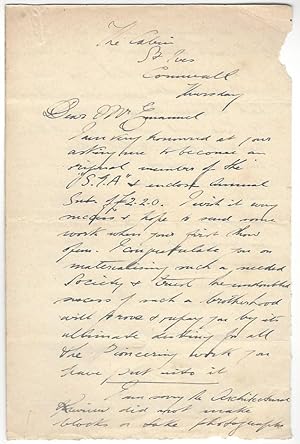 The Cabin
St Ives
Cornwall
Thursday
Dear Mr Emanuel
I am very honoured at your
asking me to become an
original member of the
"S.I.A" & enclose Annual
Sub. of £2.2.0. I wish it every
success & hope to send some
work when your first show
opens. I congratulate you on
materialising such a needed
Society & trust the undoubted
success of such a brotherhood
will prove & repay you by its
ultimate destiny for all
the Pioneering work you
have put into it
I am sorry the Architectural
Review did not make
blocks or take photographs